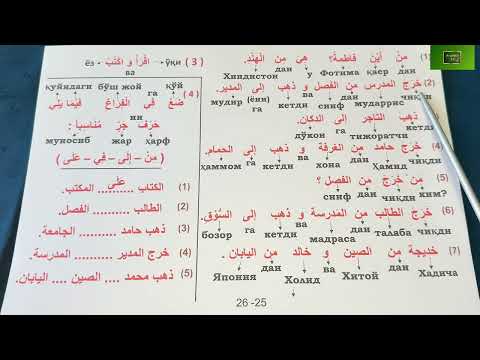 (1) مِنْ أَيْنَ فَاطِمَةُ؟ هِيَ مِنَ الْهِنْدِ.
Хиндистон у Фотима қаер дан
дан
(2) خَرَجَ المدرس مِنَ الفصل وَ ذهب إلى المدير.
мудир (ёни) га кетди ва синф дан мударрис чиқди
ذهب التاجر إلى الدكان.
дўкон га тижоратчи кетди
(4) خرج حامد مِنَ الغرفة و ذهب إلى الحمام.
ҳаммом га кетди ва хона дан Ҳамид чиқди
(5) مَنْ خرج مِنَ الفصل ؟
синф дан чиқди ким?
(6) خَرَجَ الطالب مِنَ المدرسة وَ ذهب إلى السُّوْقِ.
бозор га кетди ва мадраса дан талаба чиқди
(7) خديجة مِنَ الصين و خالد مِنَ اليابان.
Япония дан Холид ва Хитой дан Хадича
( 3 ) اقْرَأْ وَ اكْتُبْ
ёз - ўқи
ва
қуйидаги бўш жой га қўй
(4) ضَعْ فِي الْفِرَاغِ فِيْمَا يَلِي
ни
حَرْفَ جَرٍّ مُنَاسِباً :
муносиб жар ҳарф
( مِنْ – إِلَى – فِيْ – عَلَى )
(1) الكتاب ..عَلَى.. المكتب.
(2) الطالب ......... الفصل.
(3) ذهب حامد ......... الجامعة.
(4) خرج المدير ......... المدرسة.
(5) ذهب محمد .... الصين .... اليابان.
26 -25